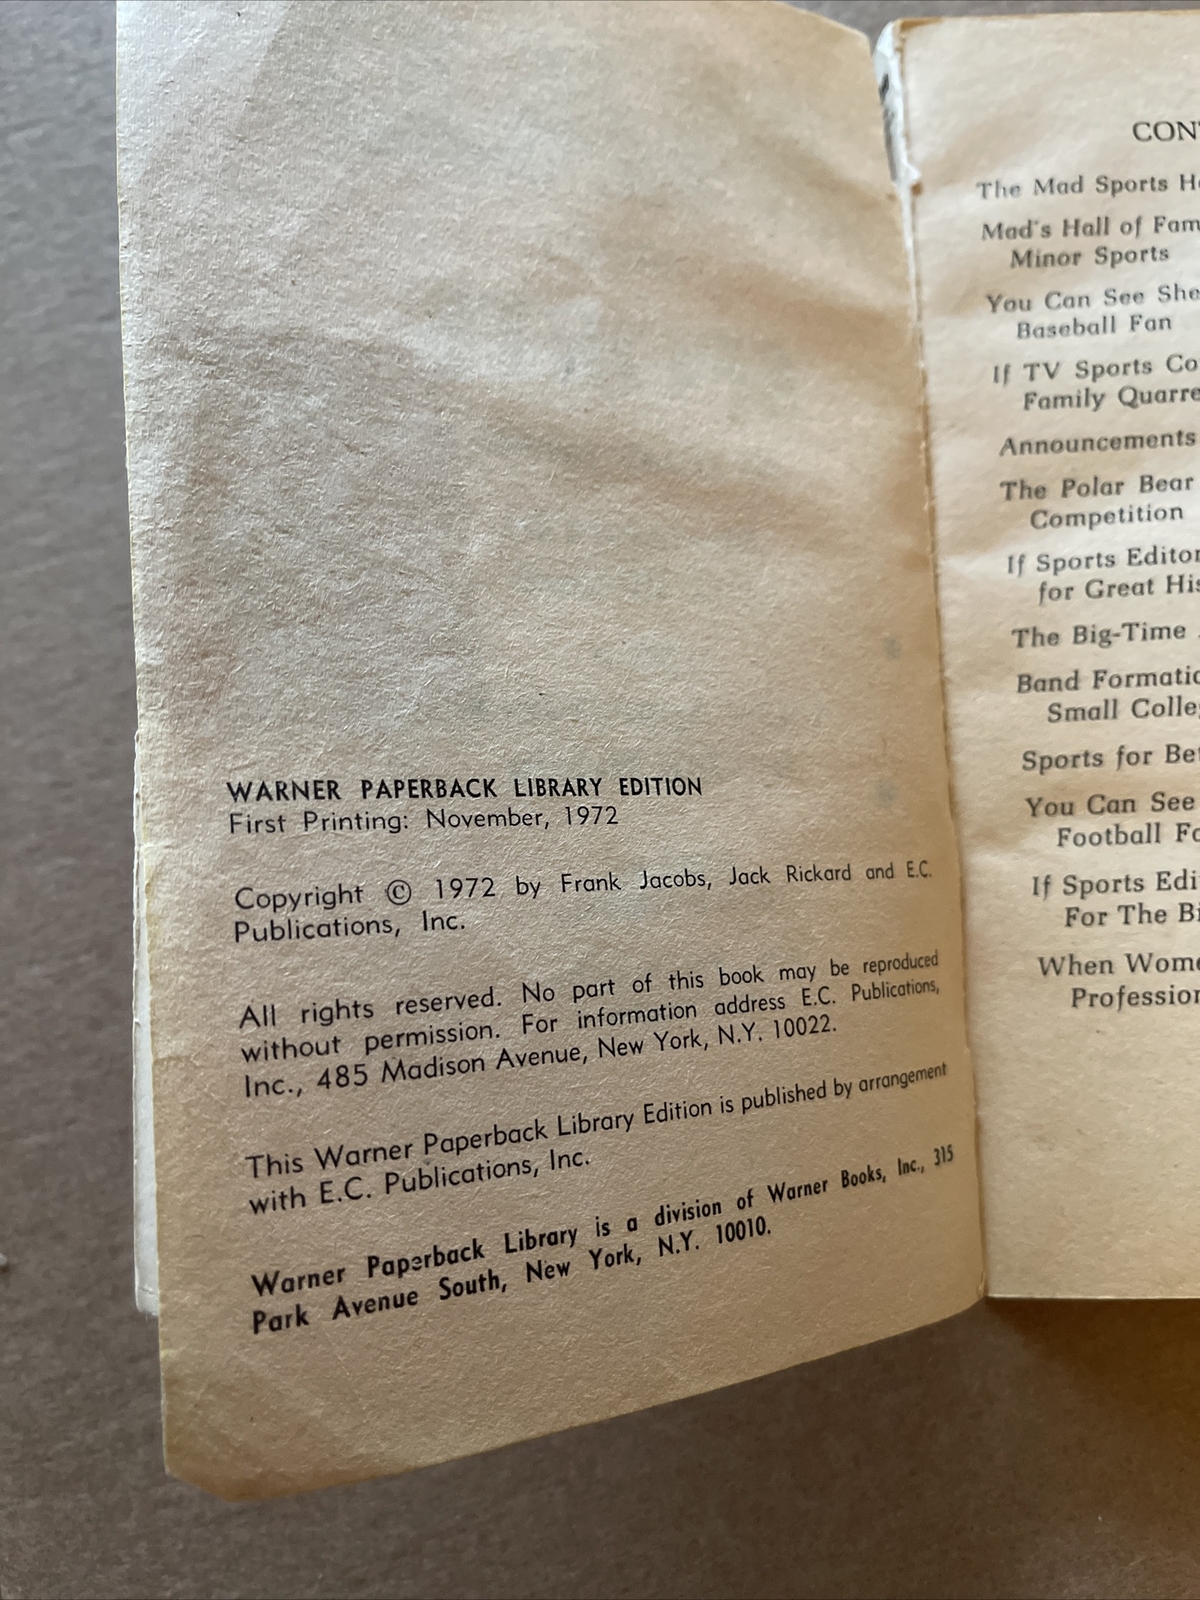 WARNER PAPERBACK LIBRARY EDITION
First Printing: November, 1972
Copyright © 1972 by Frank Jacobs, Jack Rickard and E.C.
Publications, Inc.
All rights reserved. No part of this book may be reproduced
without permission. For information address E.C. Publications,
Inc., 485 Madison Avenue, New York, N.Y. 10022.
This Warner Paperback Library Edition is published by arrangement
with E.C. Publications, Inc.
Warner Paperback Library is a division of Warner Books, Inc., 315
Park Avenue South, New York, N.Y. 10010.
The Mad Sports
Mad's Hall of
Minor Sports
You Can See
Baseball Fan
If TV Sports
Family
Announcements
The Polar Bear
Competition
If Sports
for Great
The Big-Time
Band
Small
Sports for
You Can See
Football
If Sports
For The
When